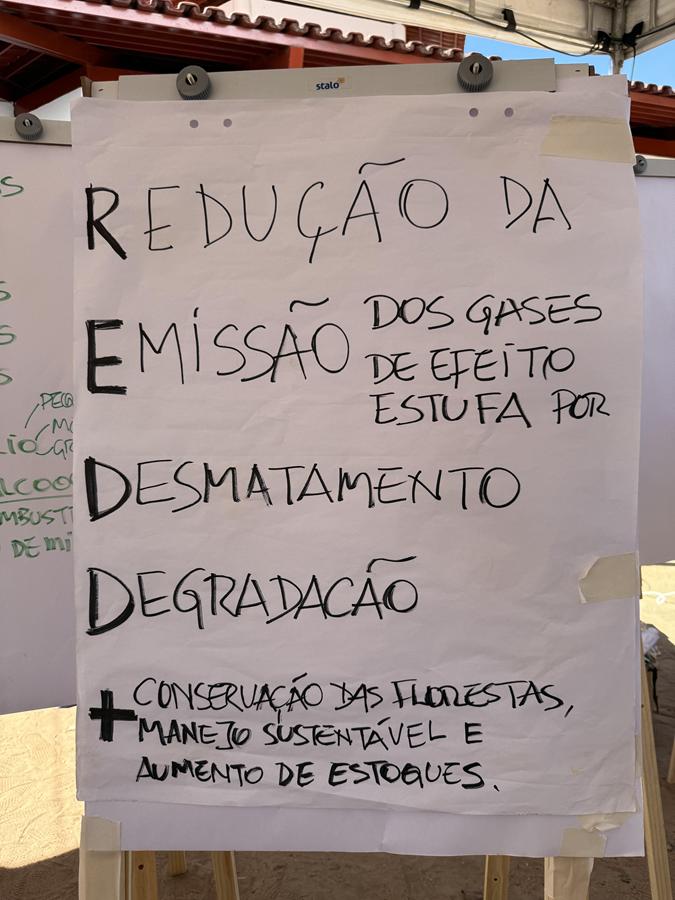 stalo
REDUÇÃO DA
EMISSÃO DOS GASES
DE EFEITO
ESTUFA POR
DESMATAMENTO
DEGRADACÃO
+ CONSERVAÇÃO DAS FLORESTAS,
MANEJO SUSTENTÁVEL E
AUMENTO DE ESTOQUES.